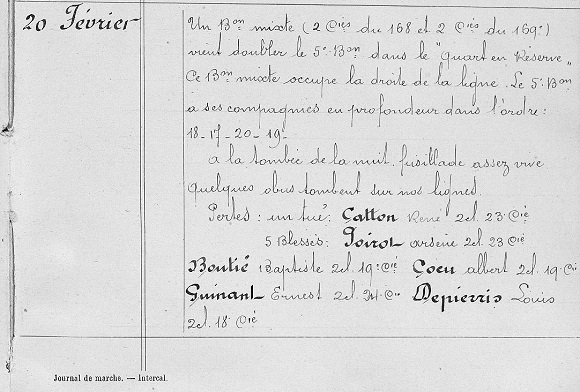 20 Février
Un B^on mixte (2 C^ies du 168 et 2 C^ies du 169^e)
vient doubler le 5^e B^on dans le "Quart en Réserve„
Ce B^on mixte occupe la droite de la ligne. Le 5^e B^on
a ses compagnies en profondeur dans l'ordre :
18 - 17 - 20 - 19^e
a la tombée de la nuit fusillade assez vive
quelques obus tombent sur nos lignes.
Pertes : un tué : Catton René 2cl. 23 C^ie
5 Blessés : Poirot arsène 2cl. 23 C^ie
Boutié Baptiste 2cl. 19^e C^ie Coeu albert 2cl. 19 C^ie
Guinant Ernest 2cl. C^ie Depierris Louis
2cl. 18 C^ie
Journal de marche. — Intercal.